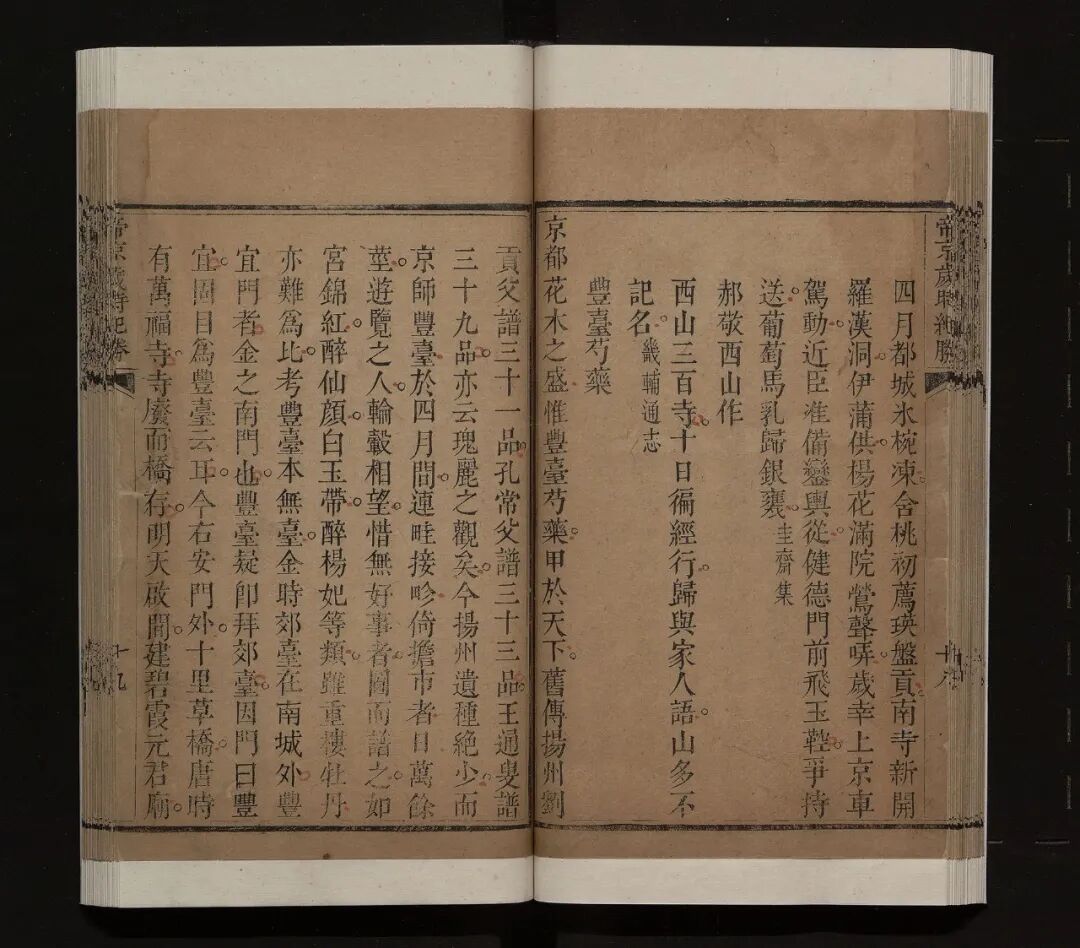 帝京歲時紀勝
十八
四月都城氷椀凍含桃初薦瑛盤貢南寺新開
羅漢洞伊蒲供楊花滿院鶯聲哢歲幸上京車
駕動近臣准備鑾輿從健德門前飛玉鞚爭持
送葡萄馬乳歸銀甕圭齋集
郝敬西山作
西山三百寺十日徧經行歸與家人語山多不
記名畿輔通志
豐臺芍藥
京都花木之盛惟豐臺芍藥甲於天下舊傳揚州劉
貢父譜三十一品孔常父譜三十三品王通叟譜
三十九品亦云瑰麗之觀矣今揚州遺種絶少而
京師豐臺於四月間連畦接畛倚擔市者日萬餘
莖遊覽之人輪轂相望惜無好事者圖而譜之如
宮錦紅醉仙顔白玉帶醉楊妃等類雖重樓牡丹
亦難爲比考豐臺本無臺金時郊臺在南城外豐
宜門者金之南門也豐臺疑卽拜郊臺因門曰豐
宜固目爲豐臺云耳今右安門外十里草橋唐時
有萬福寺寺廢而橋存明天啟間建碧霞元君廟
帝京歲時紀勝
十九